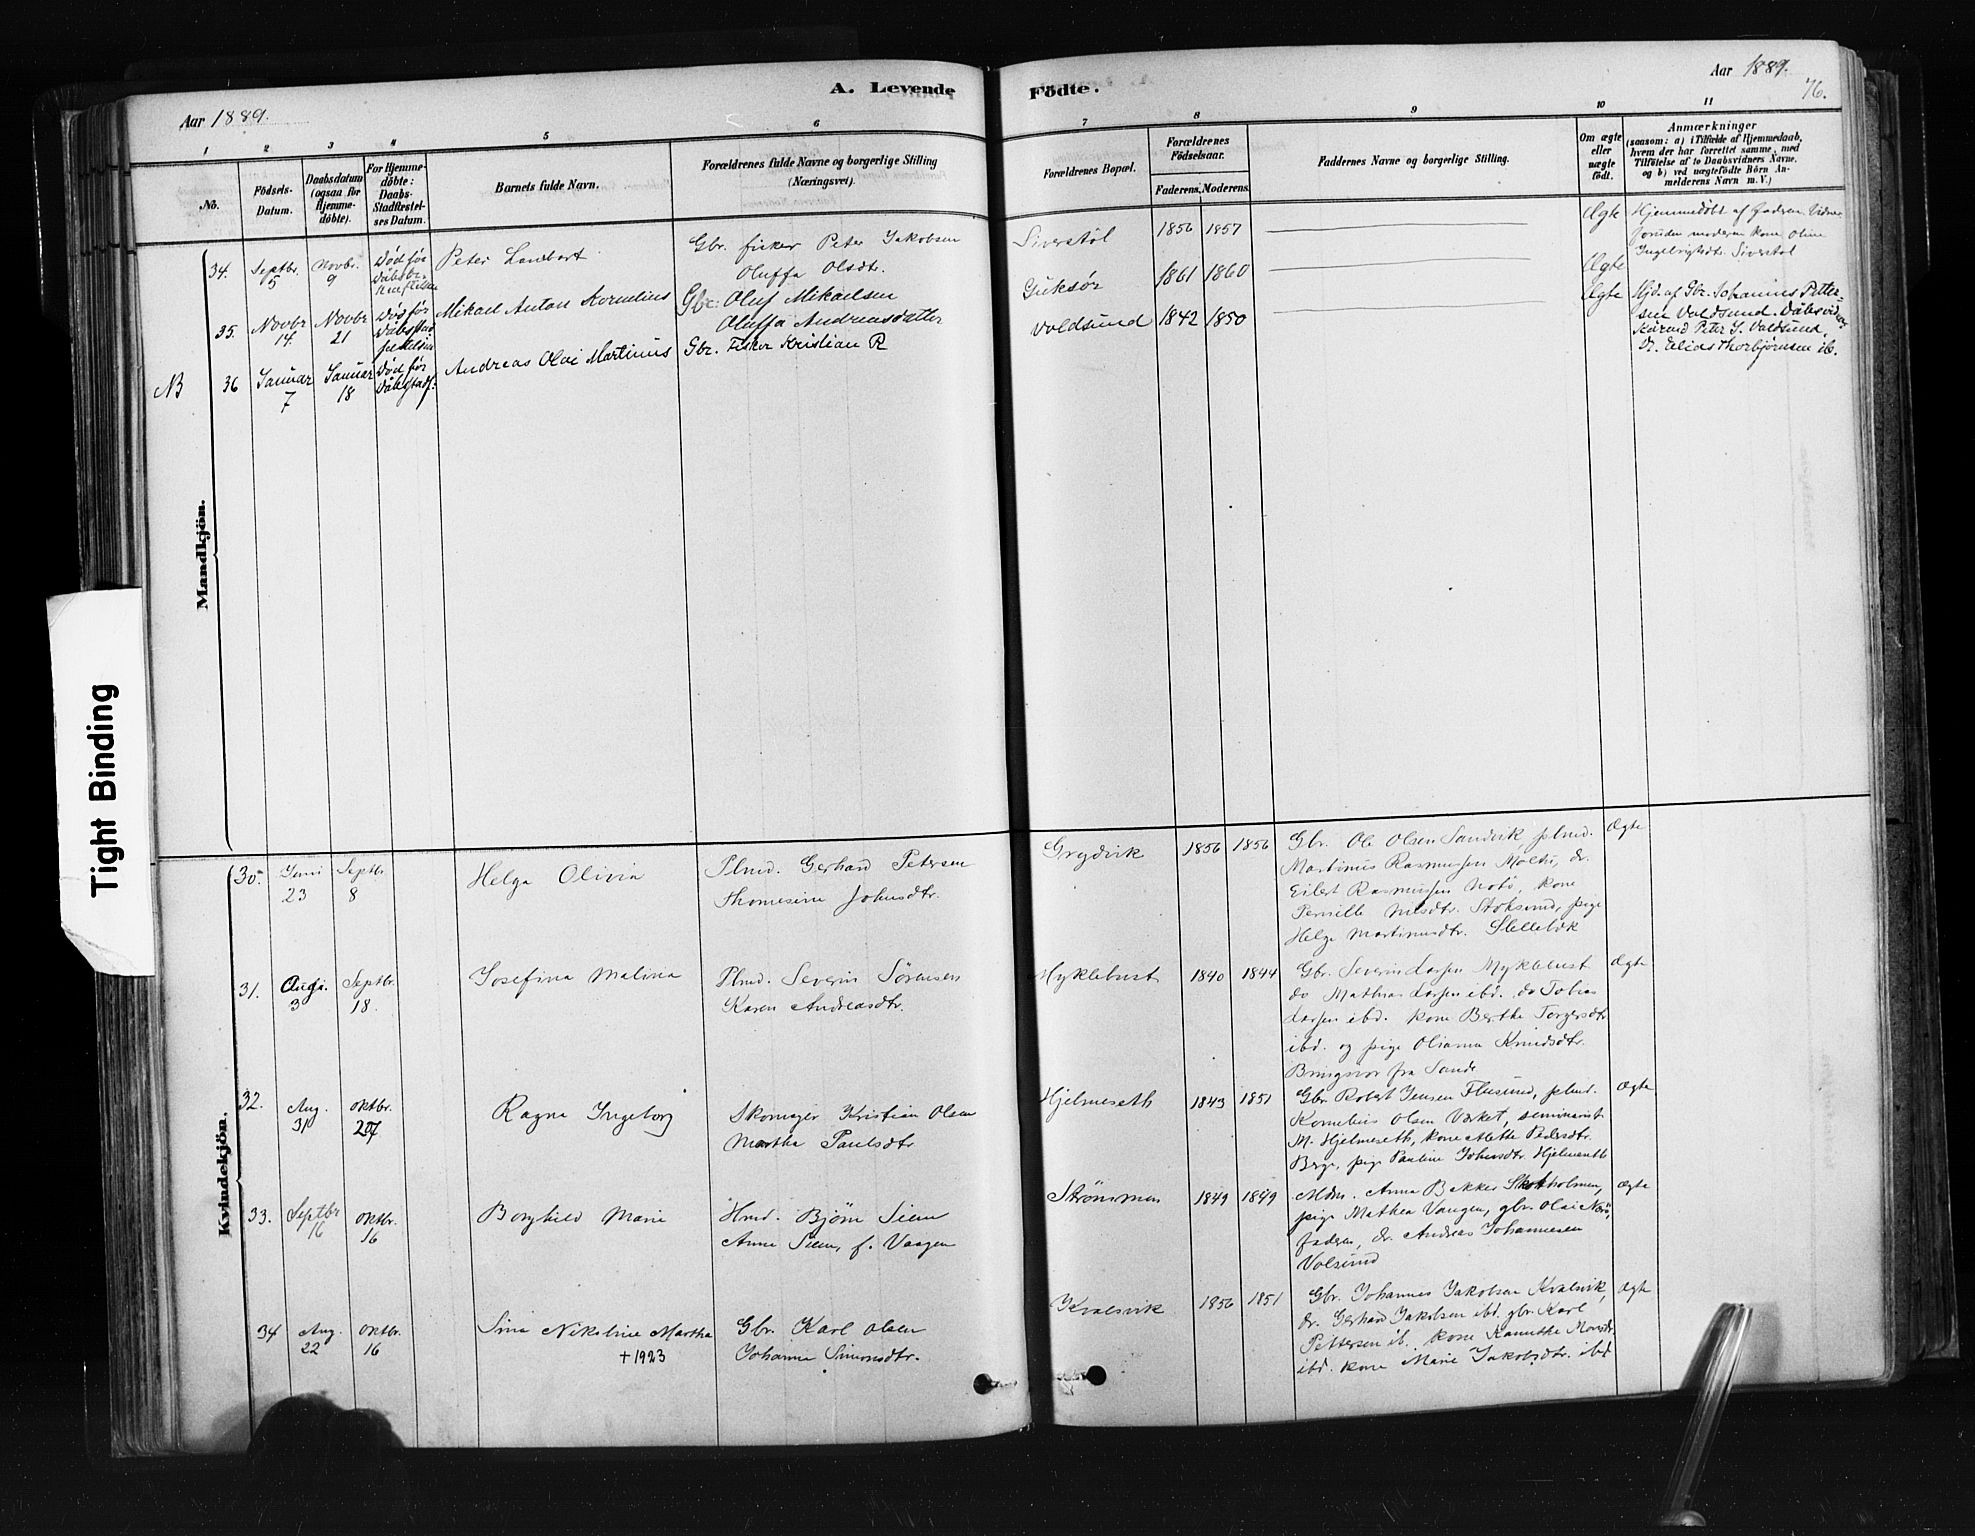 A. Levende Födte.
Aar 1889.
Aar 1889.
76.
1 2 3 4 5 6 7 8 9 10 11
No.
Födsels-Datum.
Daabsdatum (ogsaa för Hjemmedöbte).
For Hjemmedöbte: Daabs-Stadfæstelses Datum.
Barnets fulde Navn.
Forældrenes fulde Navne og borgerlige Stilling (Næringsvei).
Forældrenes Bopæl.
Forældrenes Födselsaar.
Faderens. Moderens.
Faddernes Navne og borgerlige Stilling.
Om ægte eller uægte födt.
Anmærkninger
(saasom: a) i Tilfælde af Hjemmedaab,
hvem der har forrettet samme, med
Tilföielse af to Daabsvidners Navne.
og b) ved uægtefödte Börn Anmelderens Navn m. V.)
Mandkjön.
34. Septbr. 5 Novbr. 9 Død før Peter Lambert Gbr. fisker Peter Jakobsen
Oluffa Olsdtr.
Siverstøl 1856 1857 Ægte Hjemmedøbt af faderen. Vidner
foruden moderen kone Oline
Ingebrigtsdtr. Siverstøl
35. Novbr 14. Novbr 21 Død før Dåbsstadfestelsen Mikael Anton Kornelius Gbr: Oluf Mikaelsen
Oluffa Andreasdatter
1861 1860 Ægte
NB 36 Januar 7 Januar 18 Død før Dåbstadf. Andreas Olai Martinus Gbr. Fisker Kristian R
Voldsund 1842 1850 Ægte Hjd. af Gbr. Johannes Petter-
sen Voldsund. Dåbsvidner
Peter J. Voldsund,
Dr. Elias Thorbjørnsen ib.
Tight Binding
Kvindekjön.
30. Juni 23 Septbr 8 Helga Olivia Plmd. Gerhard Petersen
Thomesine Johnsdtr.
Grydvik 1856 1856 Gbr. Ole Olsen Sandvik, plmd.
Martinus Rasmussen Moltu, do.
Eilert Rasmussen Notø, kone
Pernille Nilsdtr. Stoksund, pige
Helga Martinusdtr. Slettebak
Ægte
31. Aug. 3 Septbr. 18. Josefina Malina Plmd. Severin Sørensen
Karen Andreasdtr.
Myklebust 1840 1844 Gbr. Severin Larsen Myklebust
do Mathias Larsen ibd. do Tobias
Larsen ibd. kone Berthe Torgersdtr
ibd. og pige Oliana Knudsdtr.
Bringsvor fra Sande
Ægte
32. Aug. 31 Oktbr. 27 Ragna Ingeborg Skomager Kristian Olsen
Martha Paulsdtr
Hjelmeseth 1843 1851 Gbr. Robert Jensen Flusund, plmd.
Kornelius Olsen Værket, seminarist
M. Hjelmeseth, kone Alette Pedersdtr.
Berge, pige Pauline Johnsdtr. Hjelmeseth
Ægte
33. Septbr 16 Oktbr. 16 Borghild Marie Hmd. Bjørn Siem
Anna Siem, f. Vaagen
Strømmen 1849 1849 Mdm. Anna Bakken Skotholmen,
pige Mathea Vangen, gbr. Olai Nærø,
faderen, do. Andreas Johannesen
Volsund
Ægte
34 Aug. 22 Oktbr. 16 Sina Nikoline Martha Gbr. Karl Olsen
+ 1923 Johanne Simonsdtr.
Kvalsvik 1856 1851 Gbr. Johannes Jakobsen Kvalsvik,
do. Gerhard Jakobsen ibd. gbr. Karl
Pettersen ib. kone Ranuthe Monsdtr.
ibd. kone Marie Jakobsdtr. ibd
Ægte